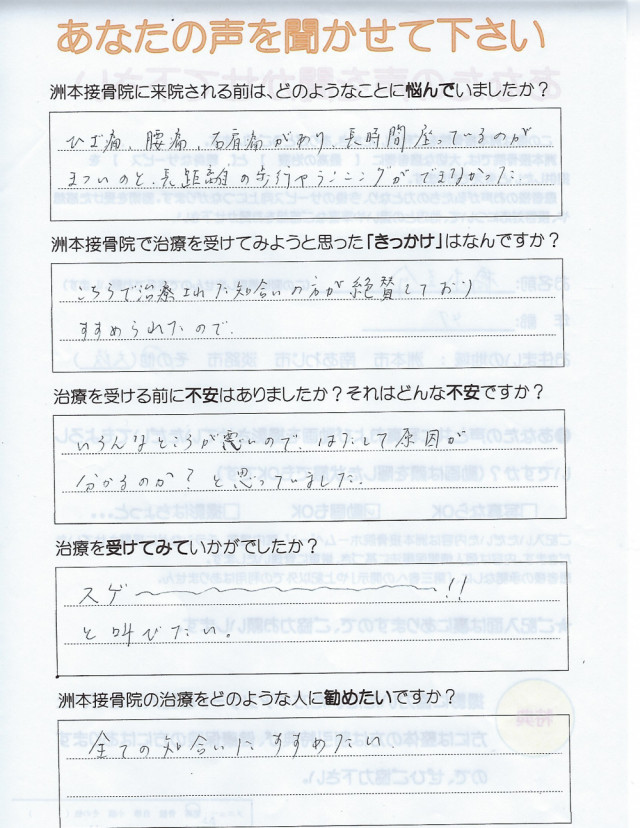 あなたの声を聞かせて下さい
洲本接骨院に来院される前は、どのようなことに悩んでいましたか？
ひざ痛、腰痛、右肩痛があり、長時間座っているのが
きついのと、長距離の歩行やランニングができなかった。
洲本接骨院で治療を受けてみようと思った「きっかけ」はなんですか？
こちらで治療された知合いの方が絶賛しており
すすめられたので。
治療を受ける前に不安はありましたか？それはどんな不安ですか？
いろんなところが悪いので、はたして原因が
分かるのか？と思っていました。
治療を受けてみていかがでしたか？
スゲ〜〜〜〜〜〜!!
と叫びたい。
洲本接骨院の治療をどのような人に勧めたいですか？
全ての知合いにすすめたい